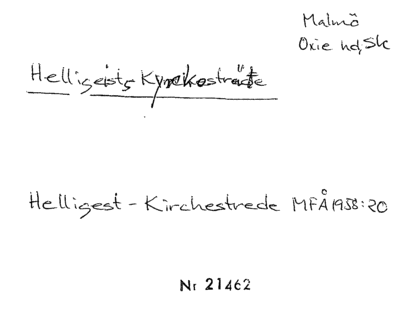 Malmö
Oxie hd, Sk
Helligeists Kyrkosträte
Helligest - Kirchestrede MFÅ 1958:20
Nr 21462